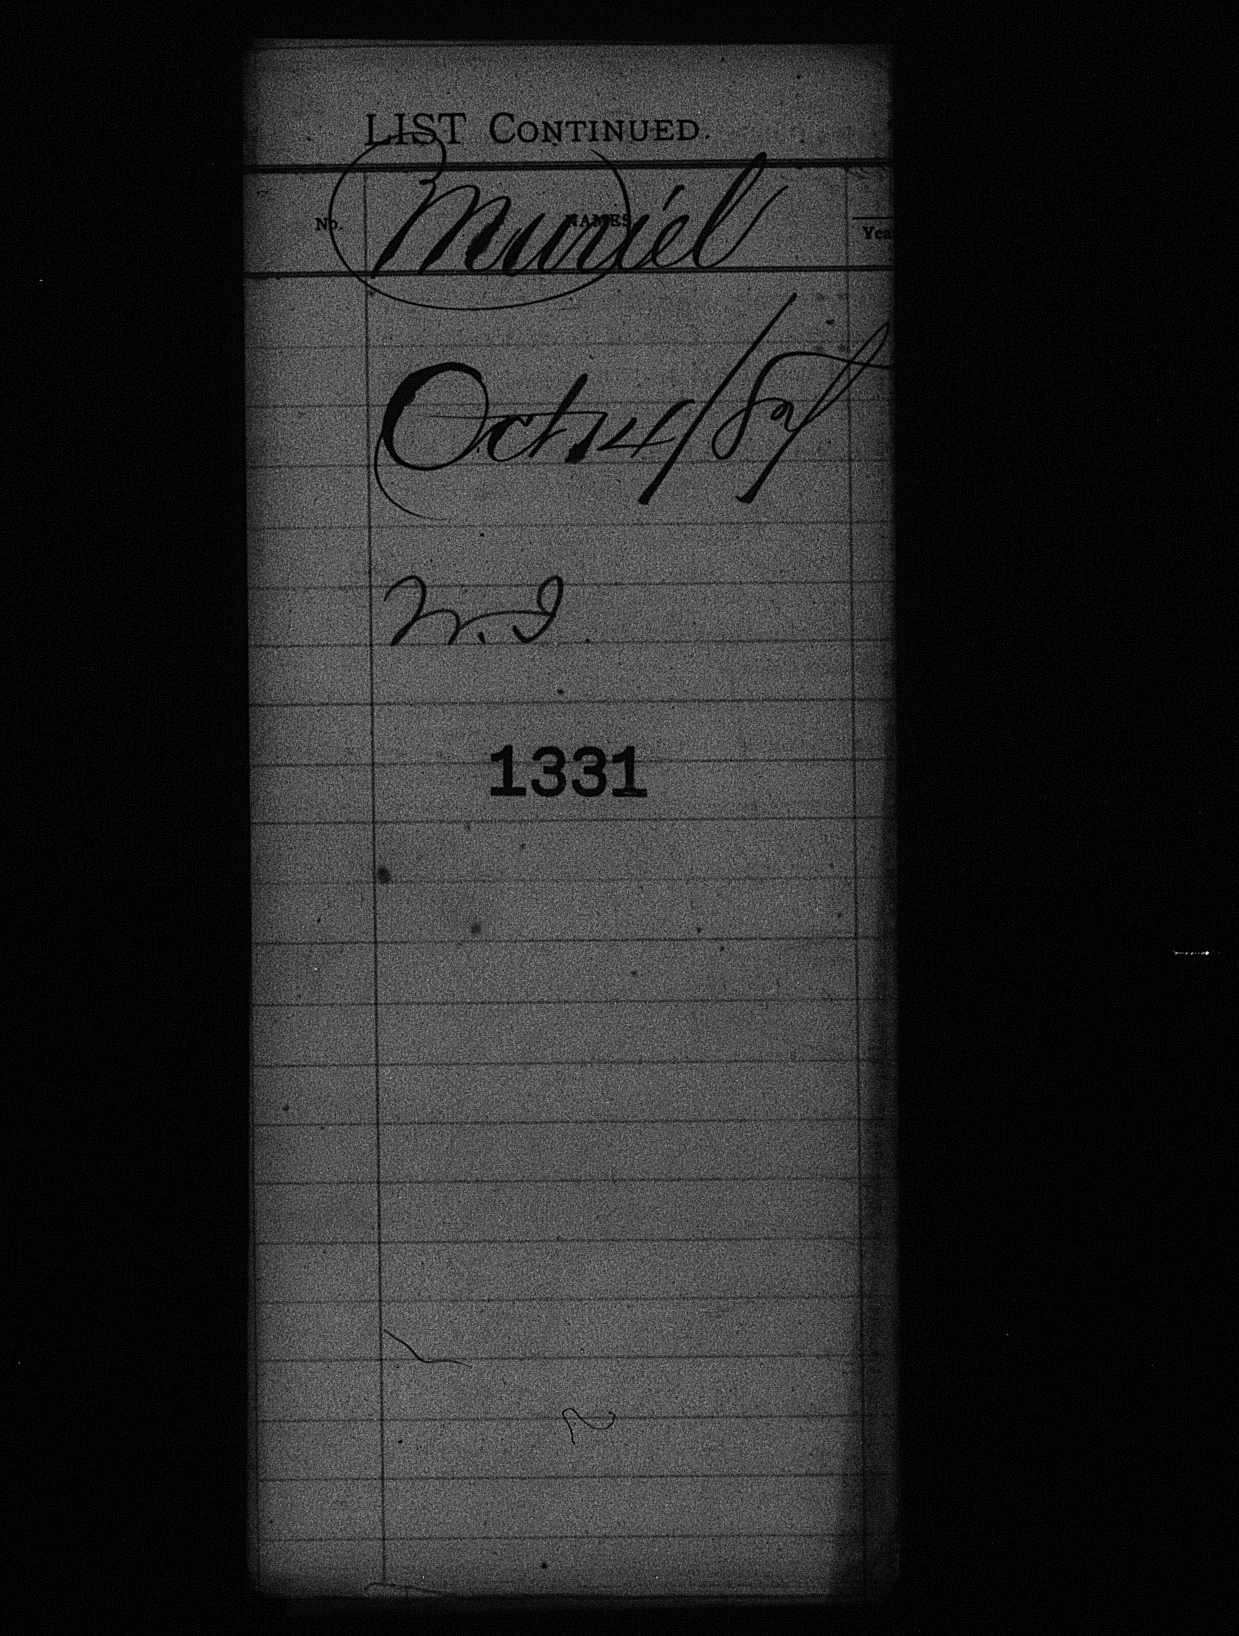 LIST CONTINUED.
No. NAMES. Yea
Muriel
Oct 14/87
W. I.
1331